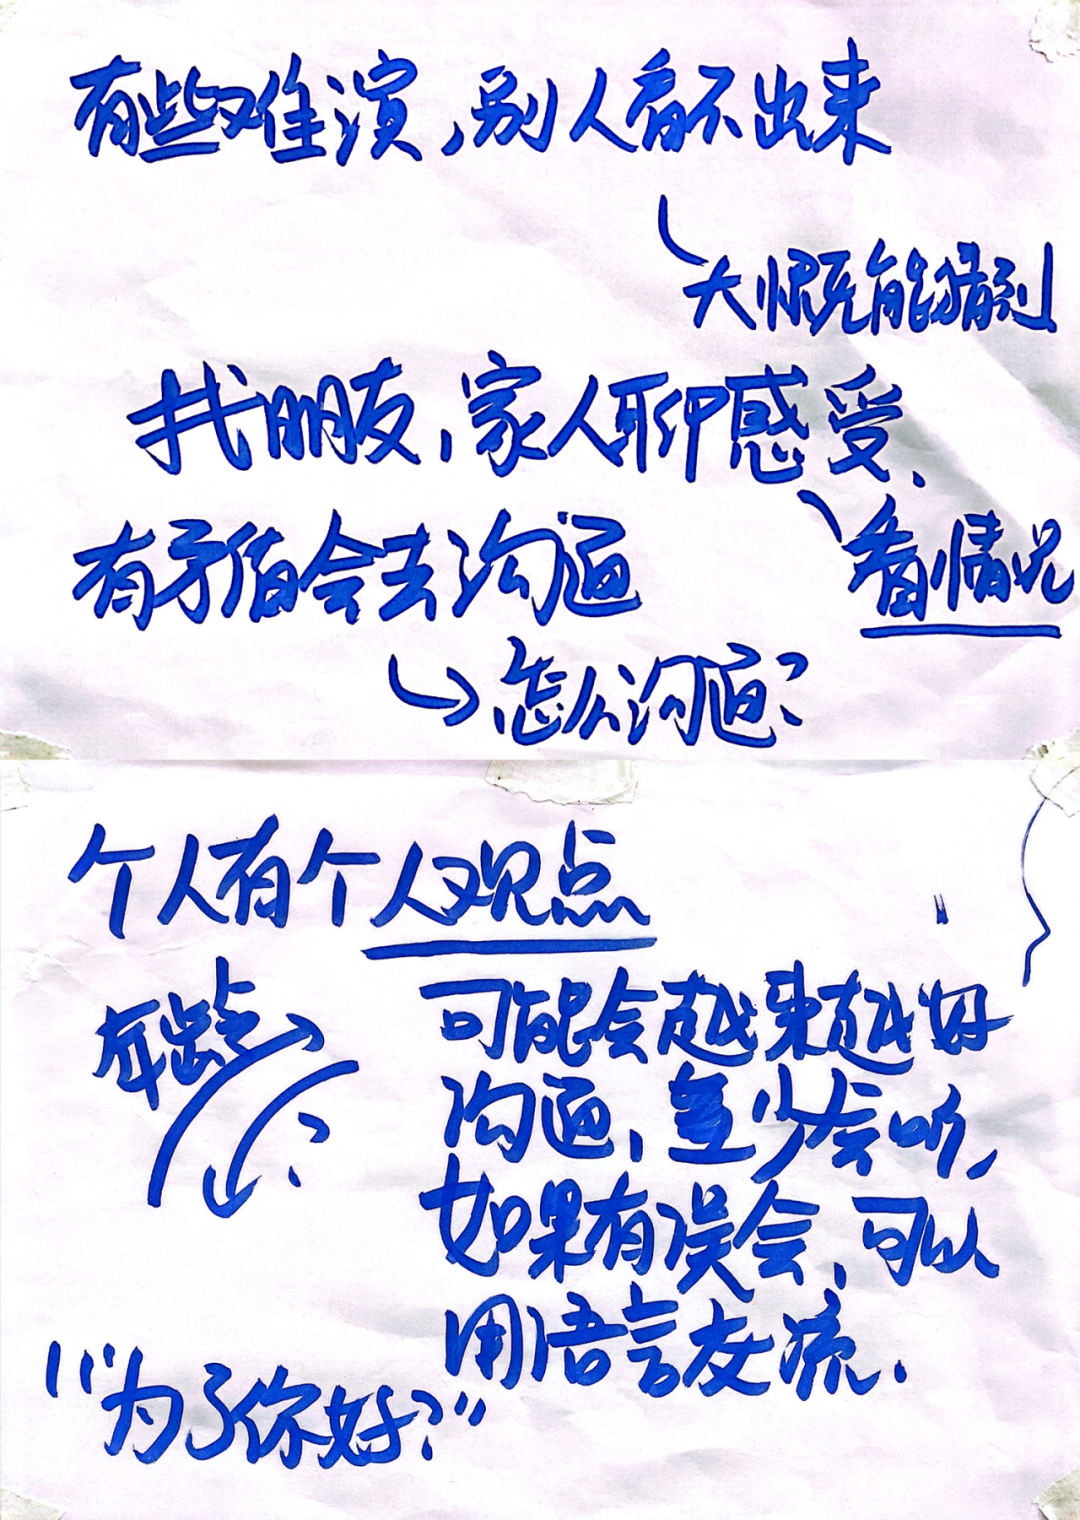 有些难演,别人看不出来
大概能猜到
找朋友,家人聊感受、
看情况
有矛盾会去沟通
怎么沟通?
个人有个人观点
年龄
?
可能会越来越好
沟通,至少会听,
如果有误会,可以
用语言交流.
"为了你好?"